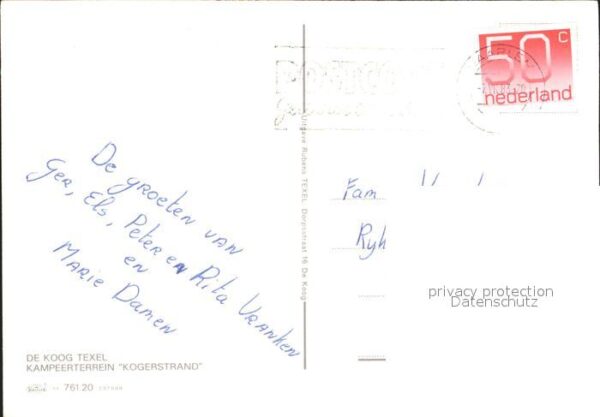 50 c
nederland
De groeten van
Ger, Els, Peter en Rita Vranken
en
Marie Damen
Uitgave Rubens TEXEL. Dorpsstraat 16 De Koog
Fam
Ryk
privacy protection
Datenschutz
DE KOOG TEXEL
KAMPEERTERREIN "KOGERSTRAND"
761.20